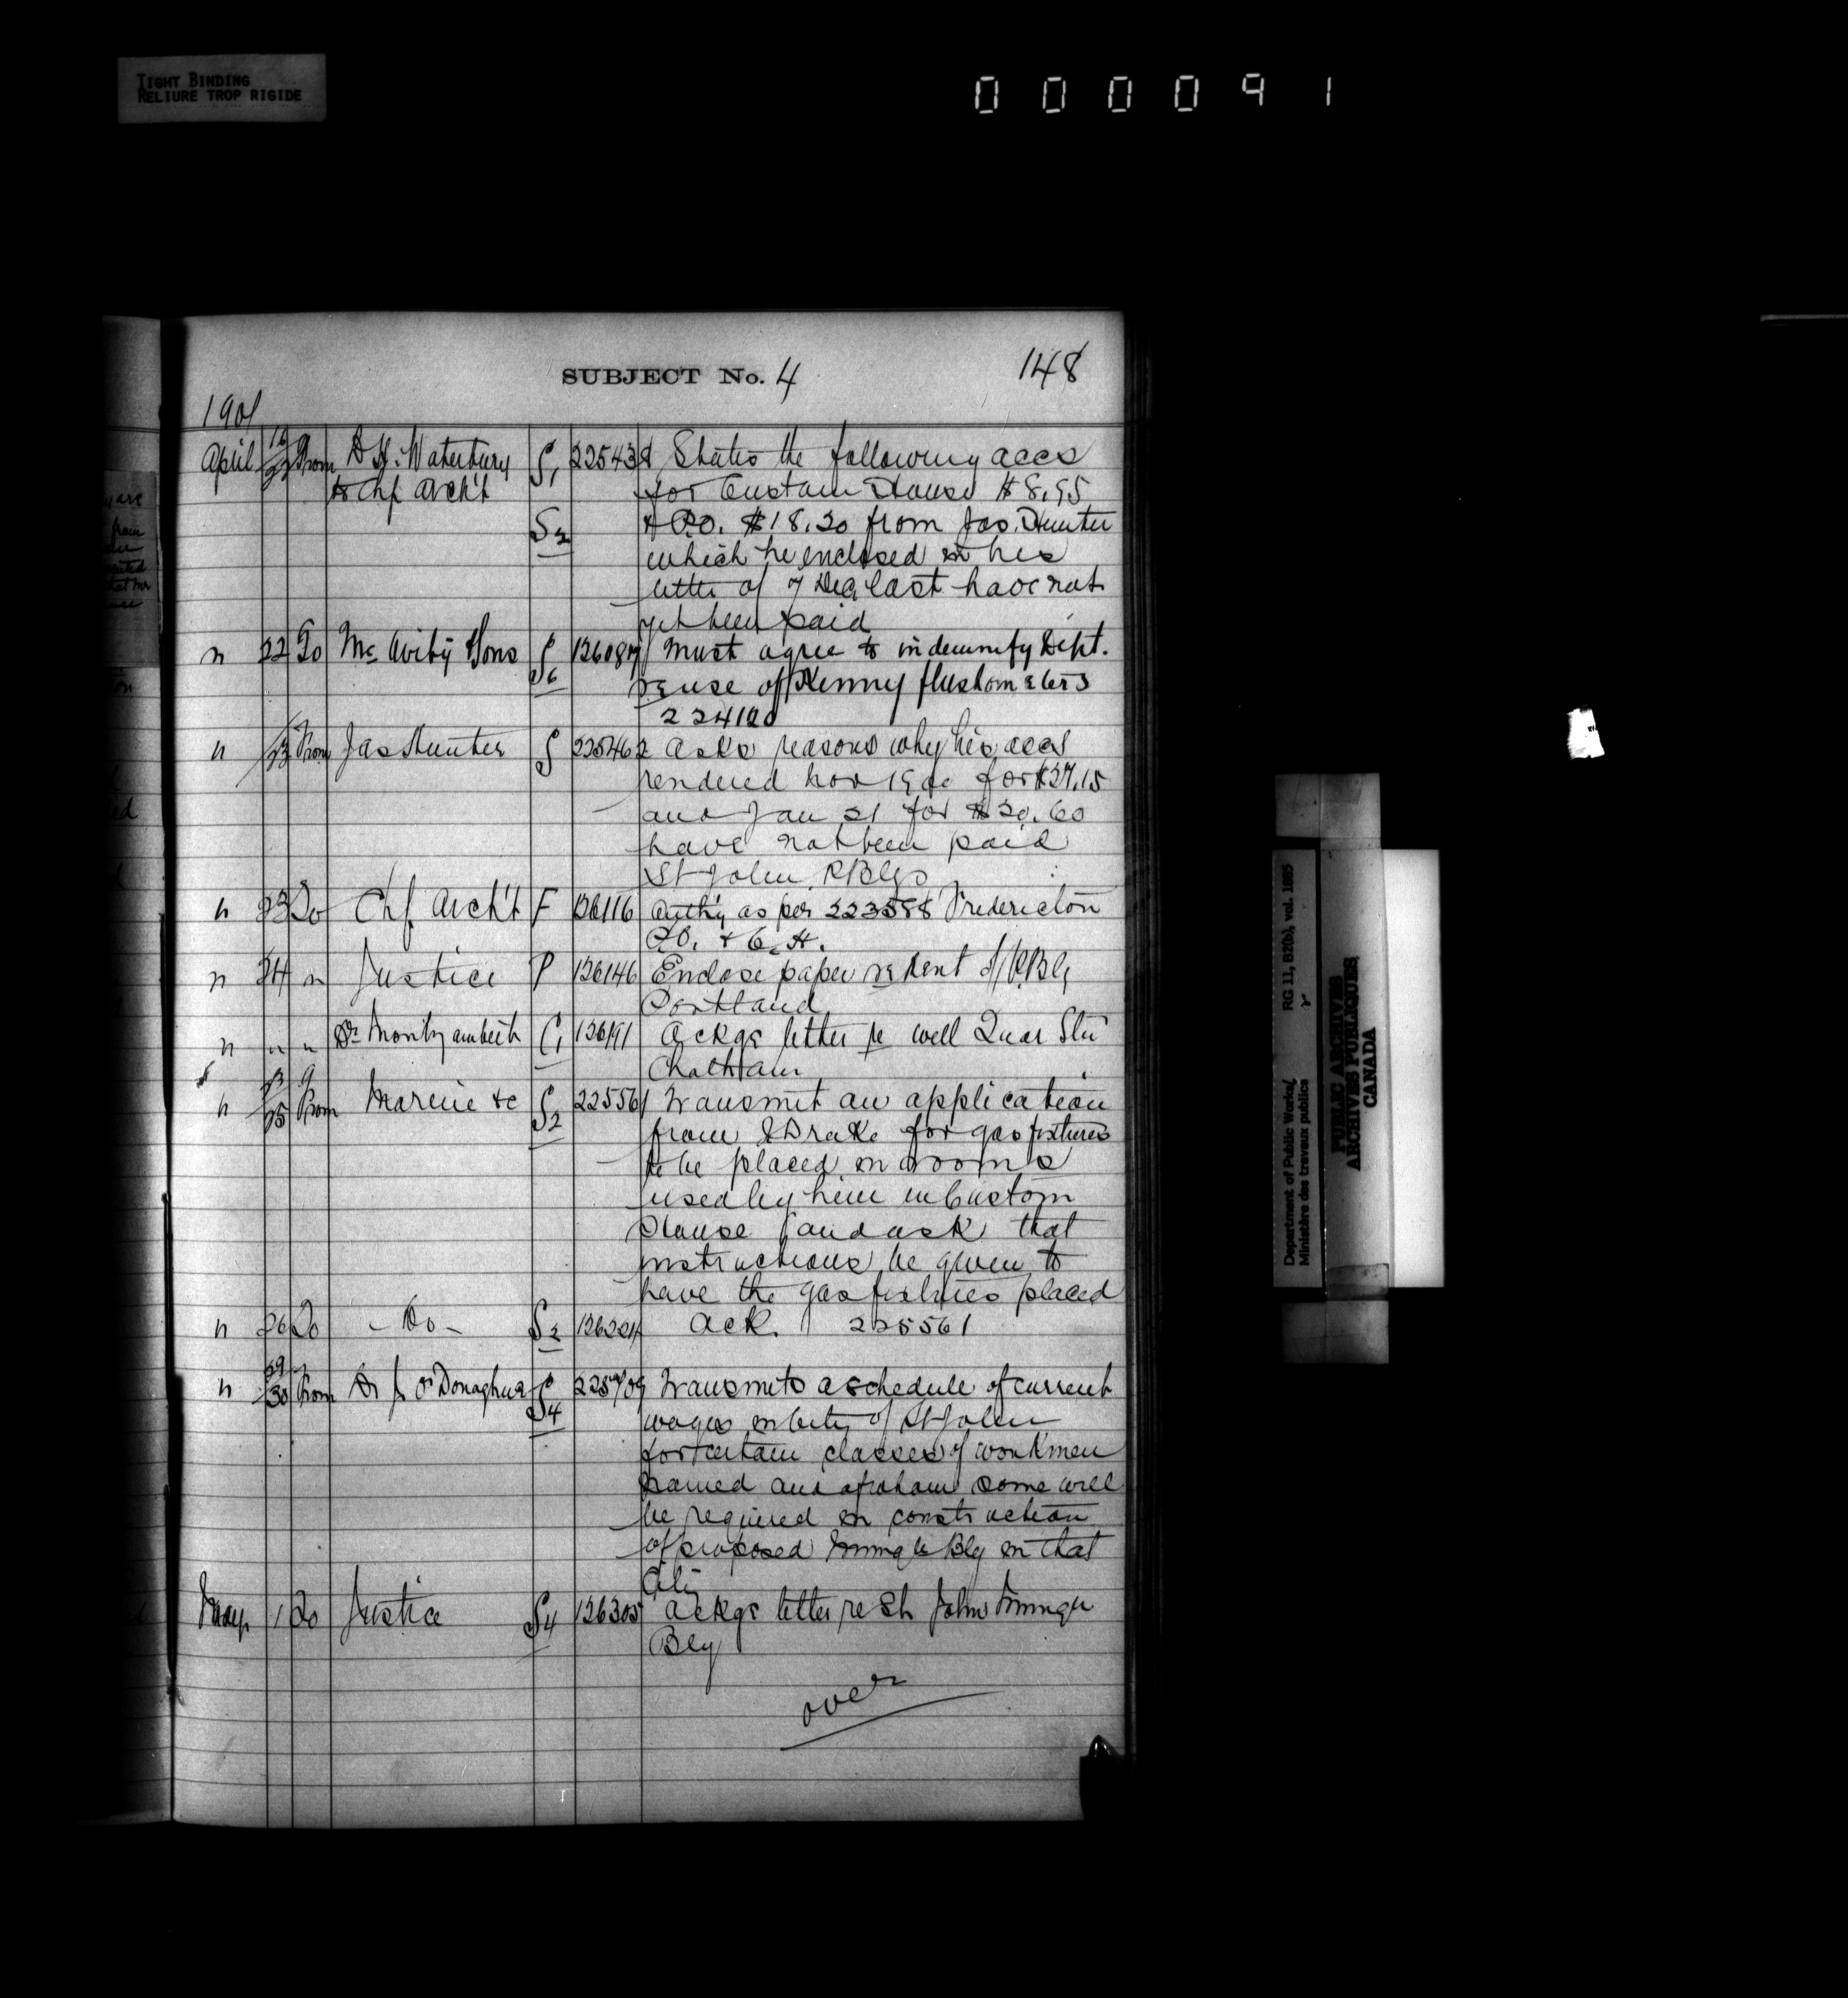 TIGHT BINDING
RELIURE TROP RIGIDE
000091
SUBJECT No. 4
148
1901
April 19/22 From D H. Waterbury S1 225434 States the following accs
to Chf Arch't for Custom House $8.95
S2 & P.O. $18.20 from Jas. Hunter
which he enclosed in his
letter of 7 Dec last have not
yet been paid
" 22 To Mc Avity & Sons S6 126087 Must agree to indemnify Dept.
re use of Kenny flushometers
224120
" 23 From Jas Hunter S 225462 Asks reasons why his accs
rendered Nov 1900 for $37.15
and Jan 21 for $20.60
have not been paid
St John P Blgs
" 23 To Chf Arch't F 126116 Auth'y as per 223588 Fredericton
P.O. & C.H.
" 24 " Justice P 126146 Enclose paper re Rent of P. Blg
Portland
" " " Dr Montizambert C1 126191 Ackgs letter re well Quar Stn
Chatham
" 23/25 From Marine &c S2 225561 Transmit an application
from J Drake for gas fixtures
to be placed in rooms
used by him in Custom
House and ask that
instructions be given to
have the gas fixtures placed
" 26 To - Do - S2 126221 Ack. 225561
" 29/30 From D. J. O'Donaghue S4 225709 Transmits a schedule of current
wages in City of St John
for certain classes of workmen
named and of whom some will
be required in construction
of proposed Immg'n Blg in that
City
May 1 To Justice S4 126305 Ackgs letter re St John Immgn
Blg
over
Department of Public Works/
Ministère des travaux publics
RG 11, B2(b), vol. 1885
PUBLIC ARCHIVES
ARCHIVES PUBLIQUES
CANADA